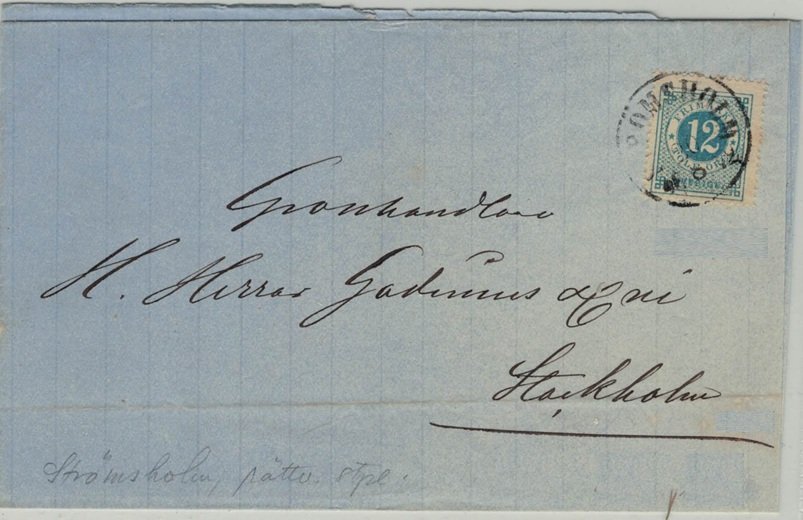 STRÖMSHOLM
FRIMÄRKE
12
TOLF ÖRE
SVERIGE
Grosshandlare
H. Herrar Gadenius & Cni
Stockholm
Strömsholm, rättv. stpl.